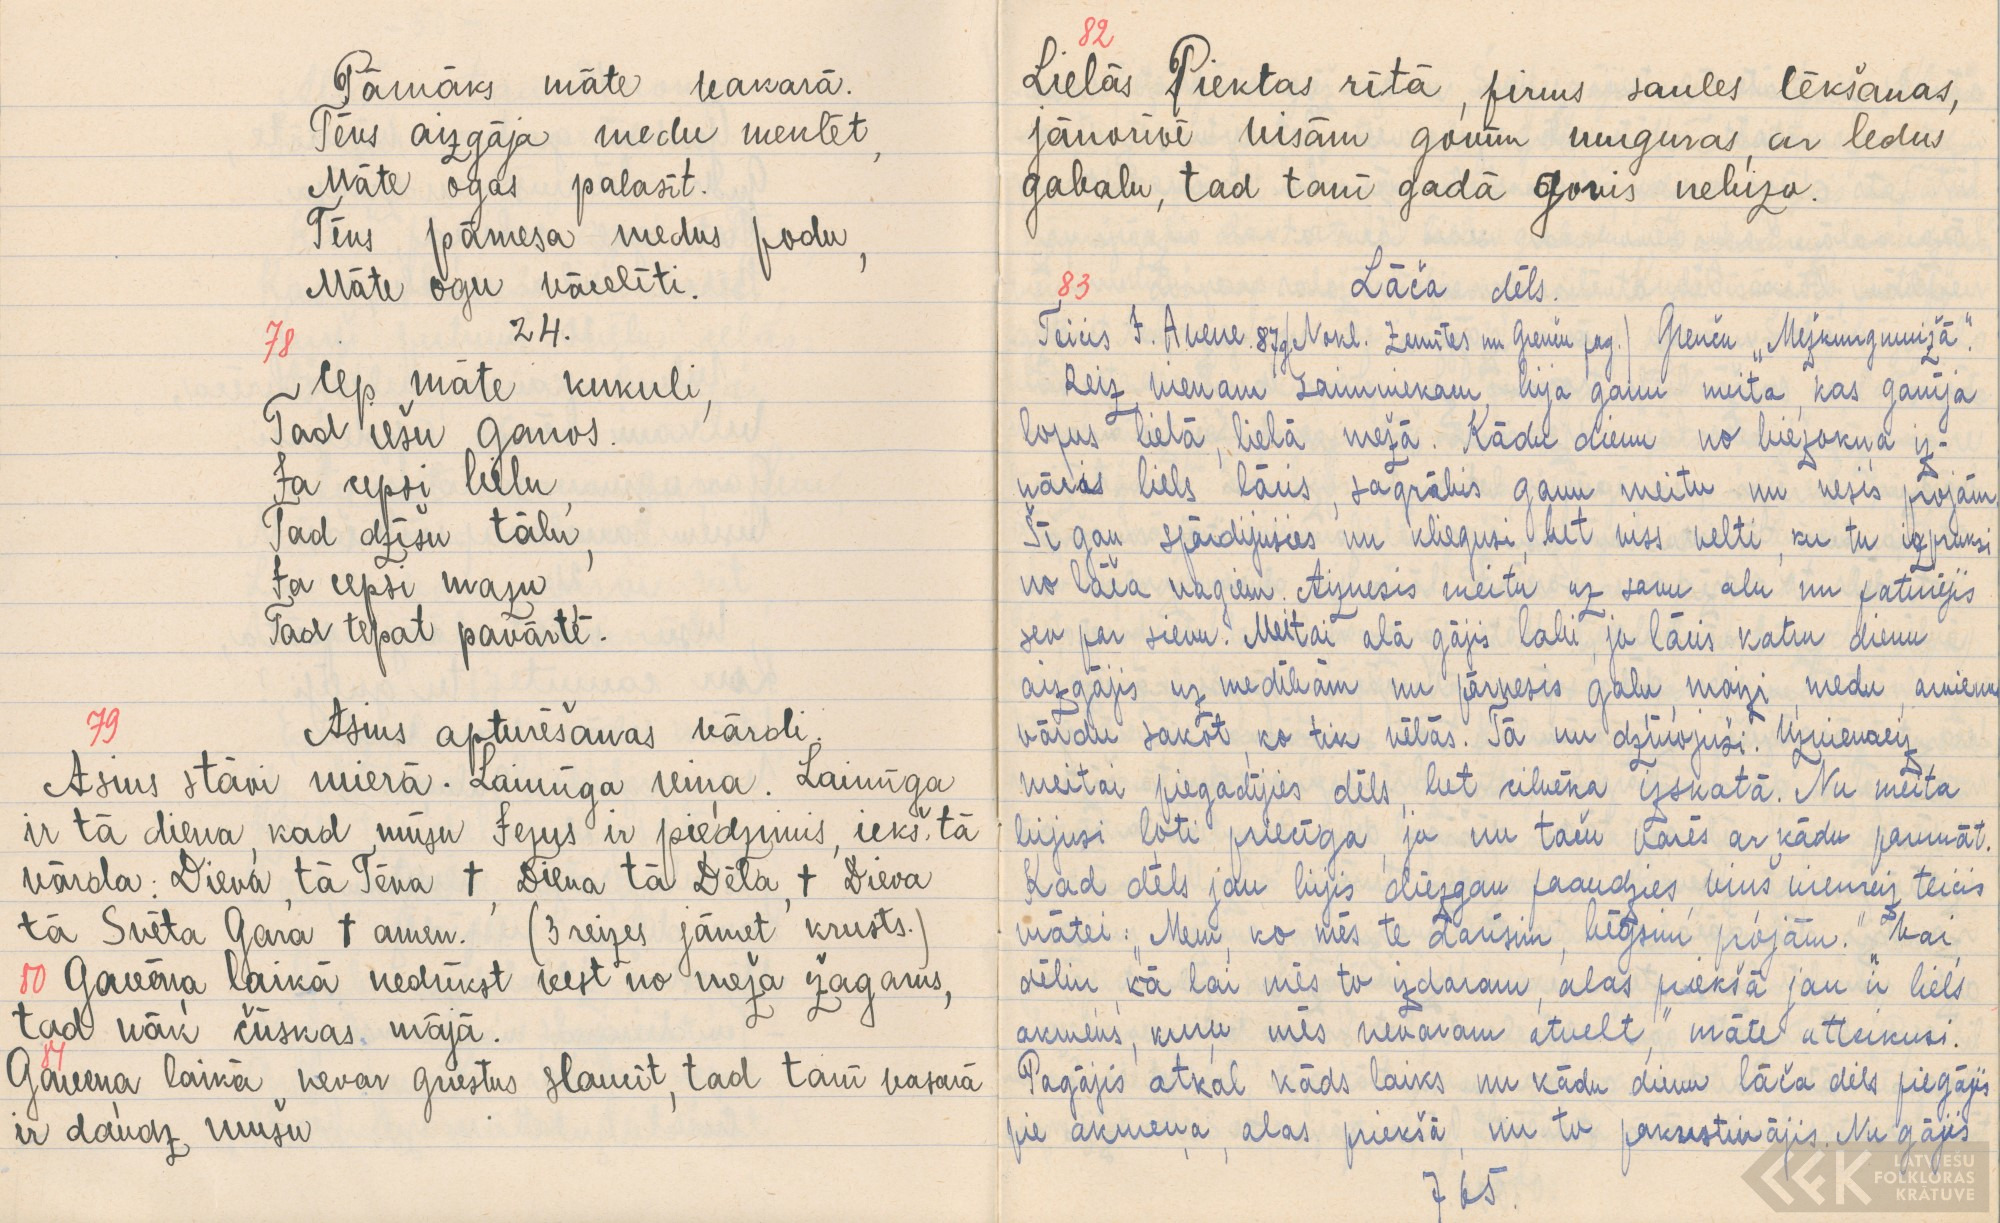 Pāmāks māte vakarā.
Tēvs aizgāja medu meklēt,
Māte ogas palasīt.
Tēvs pāmesa medus podu,
Māte ogu vācelīti.
78 24.
Cep māte kukuli,
Tad iešu ganos.
Ja cepsi lielu,
Tad dzīšu tālu,
Ja cepsi mazu
Tad tepat pavārtē.
79 Asins apturēšanas vārdi.
Asins stāvi mierā. Laimīga viņa. Laimīga
ir tā diena, kad mūsu Jezus ir piedzimis, iekš tā
vārda: Dieva, tā Tēva †, Dieva tā Dēla, † Dieva
tā Svēta Gara † amen. (3 reizes jāmet krusts.)
80 Gavēņa laikā nedrīkst vest no meža žagarus,
tad nāk čūskas mājā.
81
Gavēņa laikā nevar griestus slaucīt, tad tanī vasarā
ir daudz mušu
82
Lielās Piektas rītā, pirms saules lēkšanas,
jānorīvē visām govīm muguras ar ledus
gabalu, tad tanī gadā govis nebizo.
83 Lāča dēls.
Teicis J. Avene. 87g. (Nokl. Zemītes un Grenču pag.) Grenču „Mežkungmuižā".
Reiz vienam saimniekam bija ganu meita, kas ganīja
lopus lielā, lielā mežā. Kādu dienu no biezokņa iz-
nācis liels lācis, sagrābis ganu meitu un nesis projām.
Šī gan spārdijusies un kliegusi, bet viss velti, ku tu izpruksi
no lāča nagiem. Aiznesis meitu uz savu alu un paturējis
sev par sievu. Meitai alā gājis labi, jo lācis katru dienu
aizgājis uz medībām un pārnesis gaļu, maizi, medu, arvienu
vārdu sakot, ko tik vēlās. Tā nu dzīvojuši. Uzvienreiz
meitai piegadījies dēls, bet cilvēka izskatā. Nu meita
bijusi ļoti priecīga, jo nu taču varēs ar kādu parunāt.
Kad dēls jau bijis diezgan paaudzies, viņš vienreiz teicis
mātei: „Mem, ko mēs te darīsim, bēgsim projām." „Vai,
dēliņ, kā lai mēs to izdaram, alas priekšā jau ir liels
akmens, kuŗu mēs nevaram atvelt," māte atteikusi.
Pagājis atkal kāds laiks un kādu dienu lāča dēls piegājis
pie akmeņa, alas priekšā, un to pakustinājis. Nu gājis
765.
LATVIEŠU
FOLKLORAS
KRĀTUVE